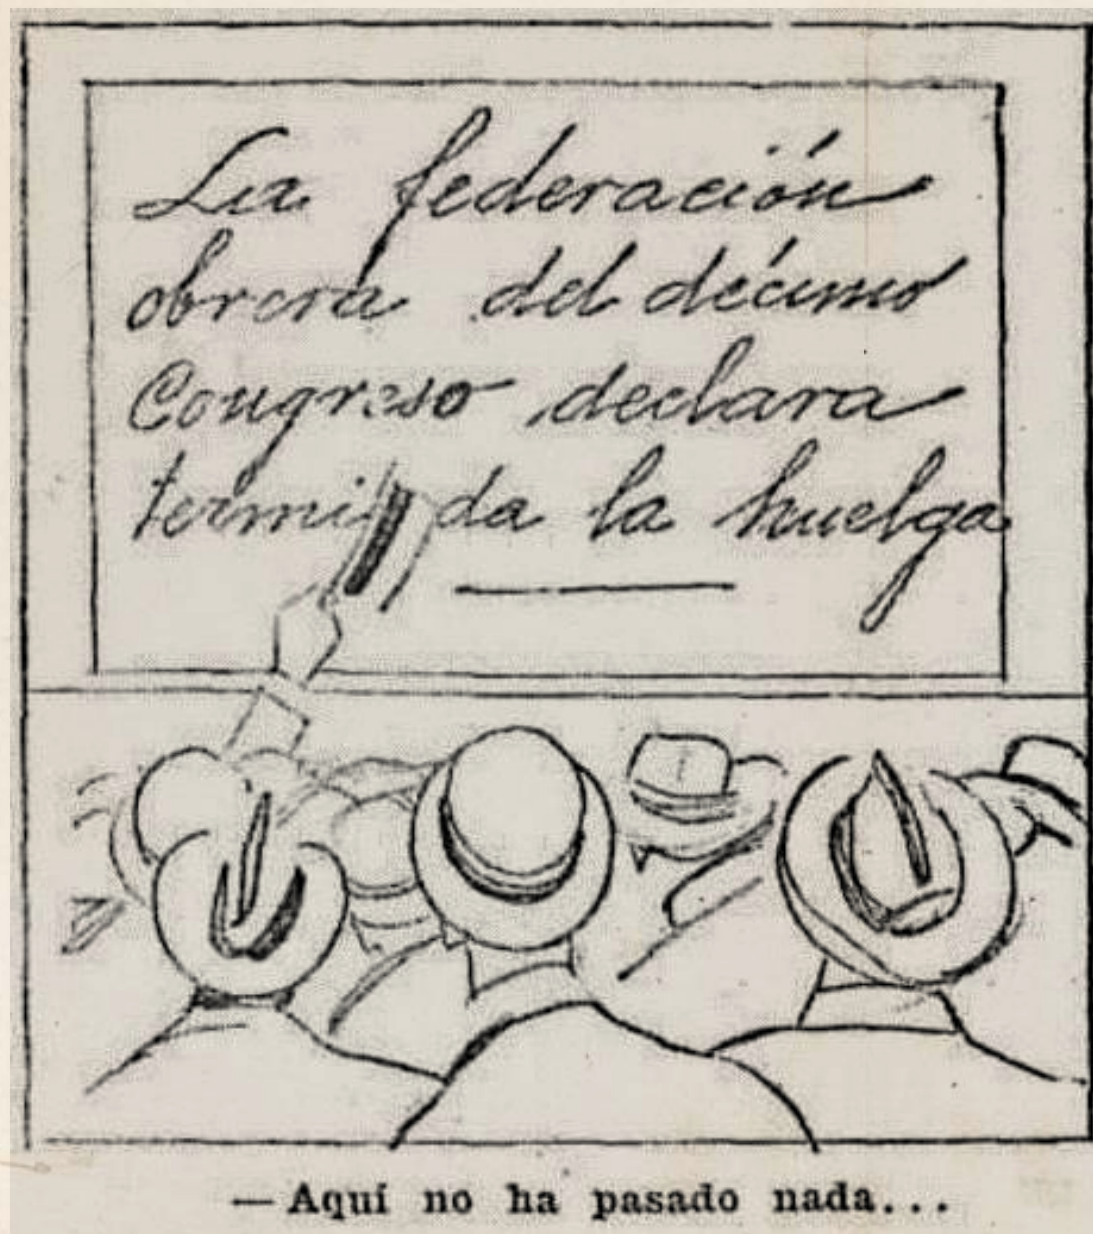 La federación
obrera del décimo
Congreso declara
termi da la huelga
—Aquí no ha pasado nada...